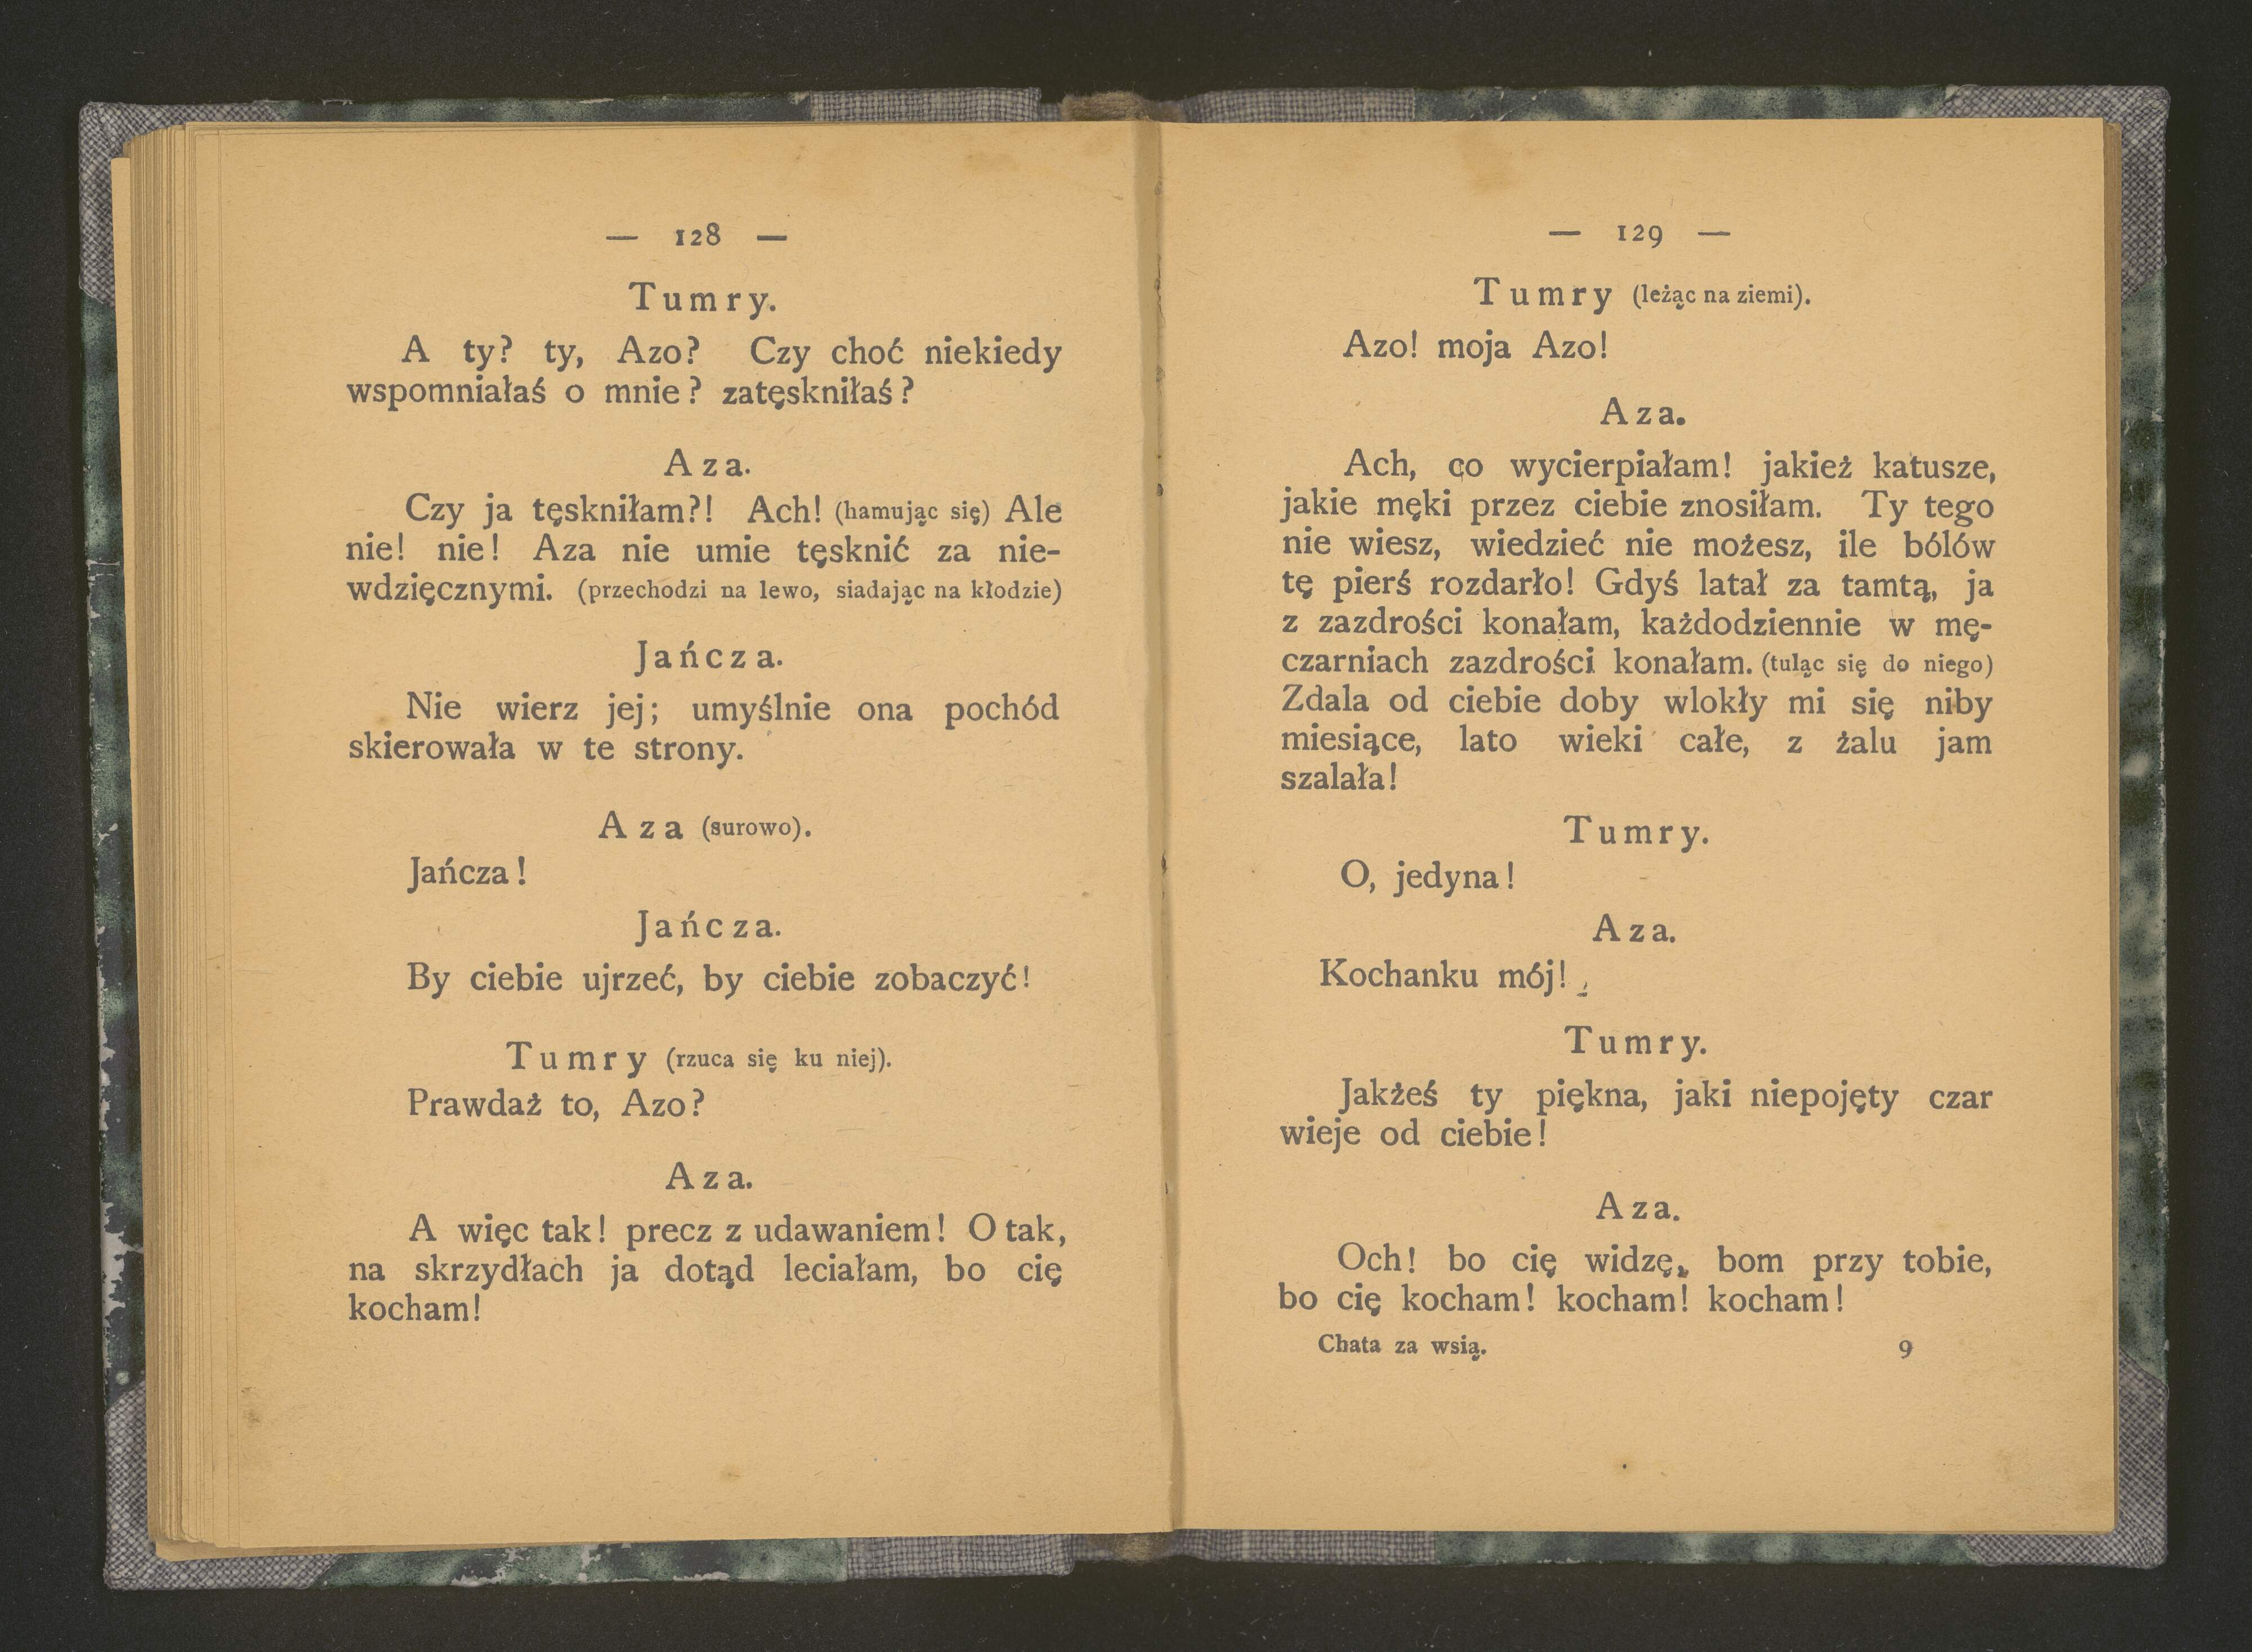 — 128 —
Tumry.
A ty? ty, Azo? Czy choć niekiedy
wspomniałaś o mnie? zatęskniłaś?
Aza.
Czy ja tęskniłam?! Ach! (hamując się) Ale
nie! nie! Aza nie umie tęsknić za nie-
wdzięcznymi. (przechodzi na lewo, siadając na kłodzie)
Jańcza.
Nie wierz jej; umyślnie ona pochód
skierowała w te strony.
Aza (surowo).
Jańcza!
Jańcza.
By ciebie ujrzeć, by ciebie zobaczyć!
Tumry (rzuca się ku niej).
Prawdaż to, Azo?
Aza.
A więc tak! precz z udawaniem! O tak,
na skrzydłach ja dotąd leciałam, bo cię
kocham!
— 129 —
Tumry (leżąc na ziemi).
Azo! moja Azo!
Aza.
Ach, co wycierpiałam! jakież katusze,
jakie męki przez ciebie znosiłam. Ty tego
nie wiesz, wiedzieć nie możesz, ile bólów
tę pierś rozdarło! Gdyś latał za tamtą, ja
z zazdrości konałam, każdodziennie w mę-
czarniach zazdrości konałam. (tuląc się do niego)
Zdala od ciebie doby wlokły mi się niby
miesiące, lato wieki całe, z żalu jam
szalała!
Tumry.
O, jedyna!
Aza.
Kochanku mój!
Tumry.
Jakżeś ty piękna, jaki niepojęty czar
wieje od ciebie!
Aza.
Och! bo cię widzę, bom przy tobie,
bo cię kocham! kocham! kocham!
Chata za wsią. 9